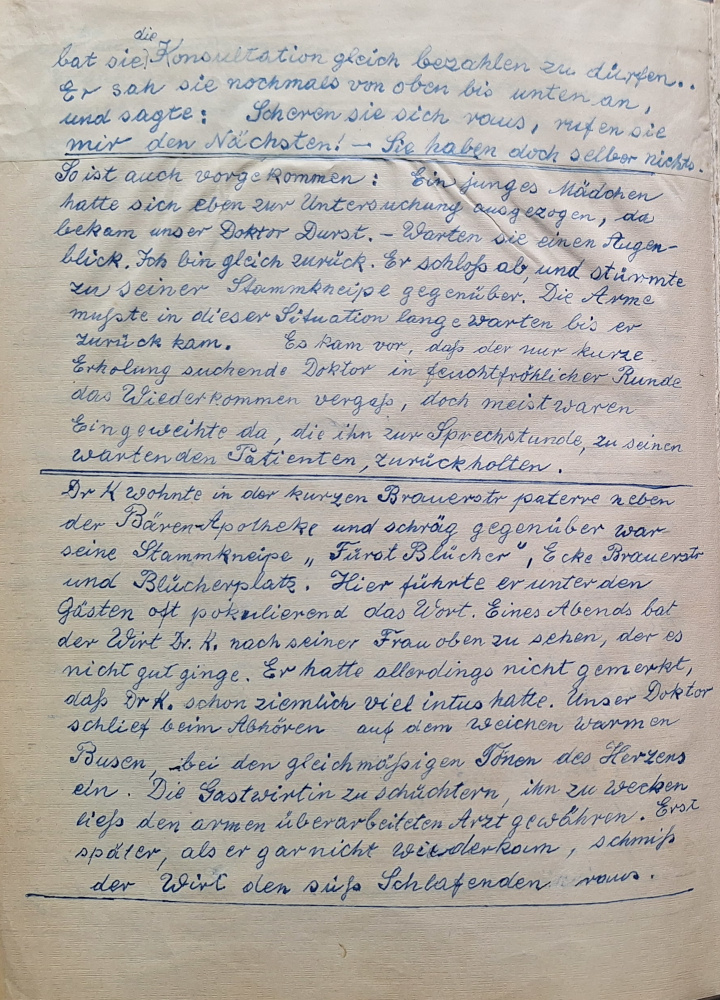 die
bat sie, Konsultation gleich bezahlen zu dürfen..
Er sah sie nochmals von oben bis unten an,
und sagte: Scheren sie sich raus, rufen sie
mir den Nächsten! – Sie haben doch selber nichts.
So ist auch vorgekommen: Ein junges Mädchen
hatte sich eben zur Untersuchung ausgezogen, da
bekam unser Doktor Durst. – Warten sie einen Augen-
blick. Ich bin gleich zurück. Er schloß ab, und stürmte
zu seiner Stammkneipe gegenüber. Die Arme
mußte in dieser Situation lange warten bis er
zurück kam. Es kam vor, daß der nur kurze
Erholung suchende Doktor in feuchtfröhlicher Runde
das Wiederkommen vergaß, doch meist waren
Eingeweihte da, die ihn zur Sprechstunde, zu seinen
wartenden Patienten, zurückholten.
Dr K wohnte in der kurzen Brauerstr paterre neben
der Bären-Apotheke und schräg gegenüber war
seine Stammkneipe „Fürst Blücher", Ecke Brauerstr
und Blücherplatz. Hier führte er unter den
Gästen oft pokulierend das Wort. Eines Abends bat
der Wirt Dr. K. nach seiner Frau oben zu sehen, der es
nicht gut ginge. Er hatte allerdings nicht gemerkt,
daß Dr K. schon ziemlich viel intus hatte. Unser Doktor
schlief beim Abhören auf dem weichen warmen
Busen, bei den gleichmäßigen Tönen des Herzens
ein. Die Gastwirtin zu schüchtern, ihn zu wecken
ließ den armen überarbeiteten Arzt gewähren. Erst
später, als er gar nicht wiederkam, schmiß
der Wirt den süß Schlafenden raus.